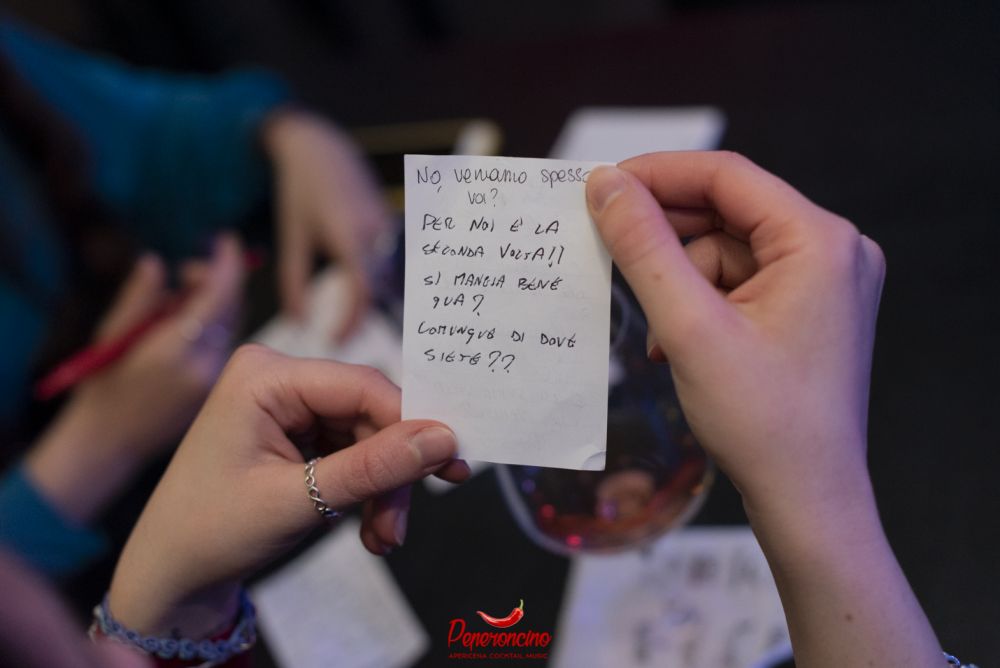 No, veniamo spesso
voi?
PER NOI È LA
SECONDA VOLTA!!
SI MANGIA BENE
QUA?
COMUNQUE DI DOVE
SIETE??
Peperoncino
APERICENA COCKTAIL MUSIC